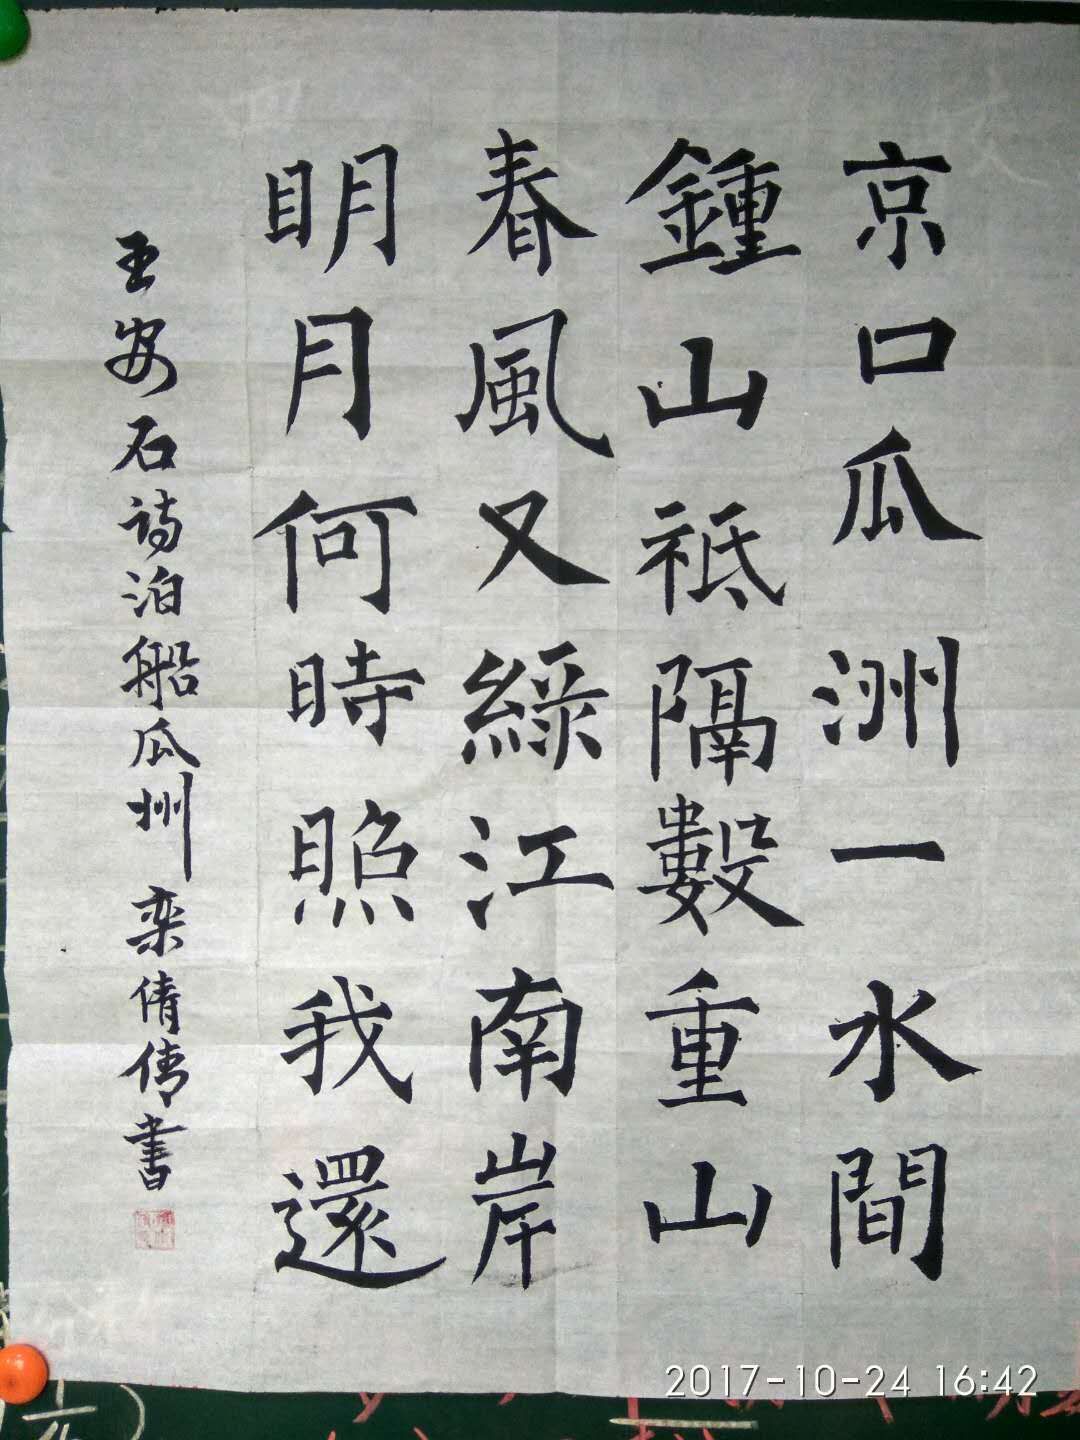 京口瓜洲一水間
鍾山祗隔數重山
春風又綠江南岸
明月何時照我還
王安石詩泊船瓜州 栾倩倩書
2017-10-24 16:42